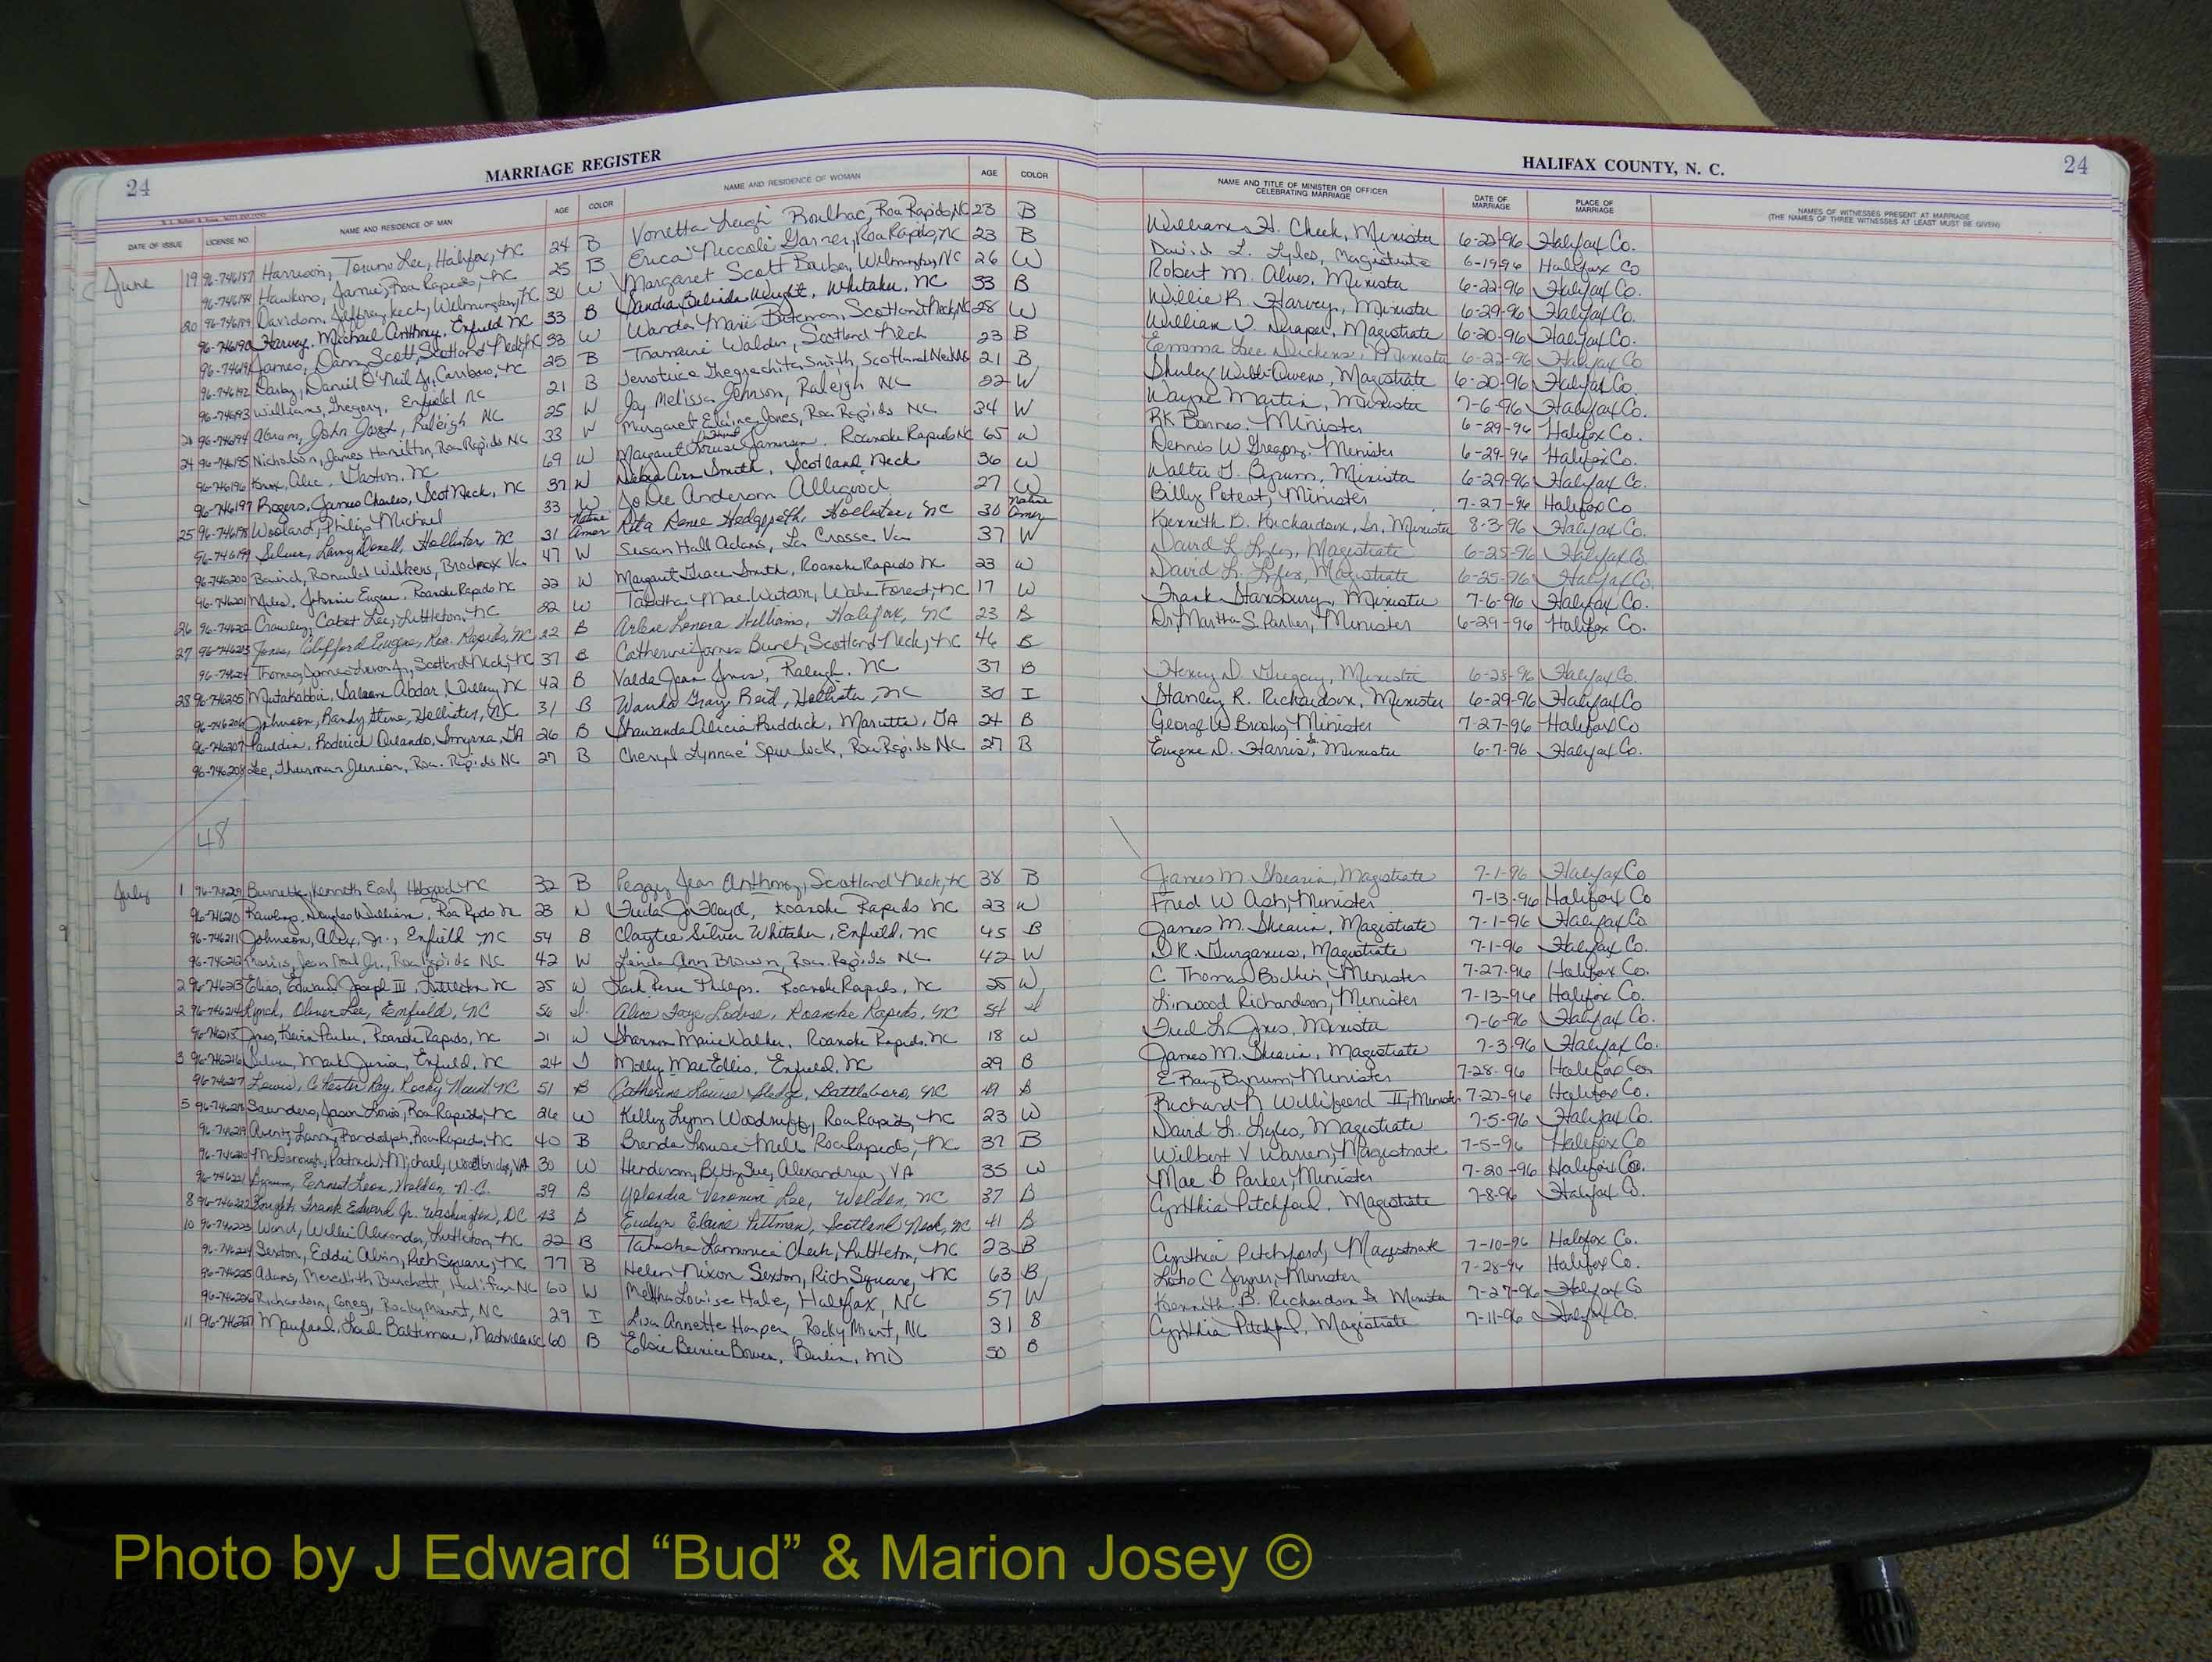 24
MARRIAGE REGISTER
HALIFAX COUNTY, N. C.
24
DATE OF ISSUE LICENSE NO. NAME AND RESIDENCE OF MAN AGE COLOR NAME AND RESIDENCE OF WOMAN AGE COLOR NAME AND TITLE OF MINISTER OR OFFICER CELEBRATING MARRIAGE DATE OF MARRIAGE PLACE OF MARRIAGE NAMES OF WITNESSES PRESENT AT MARRIAGE (THE NAMES OF THREE WITNESSES AT LEAST MUST BE GIVEN)
June 19 96-746187 Harrison, Lee, Halifax, NC 24 B Vonetta Leigh Boulhac, Roa Rapids, NC 23 B William H. Cheek, Minister 6-22-96 Halifax Co.
96-746188 Hawkins, Jamie, Roa Rapids, NC 25 B Erica Niccole Garner, Roa Rapids, NC 23 B David L. Lyles, Magistrate 6-19-96 Halifax Co
20 96-746189 Davidson, Jeffrey Kech, Wilmington, NC 30 W Margaret Scott Barber, Wilmington, NC 26 W Robert M. Alves, Minister 6-22-96 Halifax Co.
96-746190 Harvey, Michael Anthony, Enfield NC 33 B Sandra Belinda Wright, Whitakers, NC 33 B Willie R. Harvey, Minister 6-29-96 Halifax Co.
96-746191 James, Danny Scott, Scotland Neck, NC 33 W Wanda Marie Bateman, Scotland Neck, NC 28 W William V. Draper, Magistrate 6-20-96 Halifax Co.
96-746192 Darby, Daniel O'Neil Jr, Carrboro, NC 25 B Walden, Scotland Neck 23 B Lee Dickens, Minister 6-22-96 Halifax Co
96-746193 Williams, Gregory, Enfield NC 21 B Smith, Scotland Neck NC 21 B Shirley Webb Owens, Magistrate 6-20-96 Halifax Co.
21 96-746194 Abram, John Joseph, Raleigh NC 25 W Joy Melissa Johnson, Raleigh NC 22 W Wayne Martin, Minister 7-6-96 Halifax Co.
24 96-746195 Nicholson, James Hamilton, Roa Rapids NC 33 W Margaret Elaine Jones, Roa Rapids NC 34 W RK Barnes, Minister 6-29-96 Halifax Co.
96-746196 Knox, Alec, Gaston, NC 69 W Margaret Louise Jameson, Roanoke Rapids NC 65 W Dennis W Gregory, Minister 6-29-96 Halifax Co.
96-746197 Rogers, James Charles, Scot Neck, NC 37 W Debra Ann Smith, Scotland Neck 36 W Walter G. Bynum, Minister 6-29-96 Halifax Co.
25 96-746198 Woolard, Philip Michael 33 W Jo Dee Anderson Alligood 27 W Billy Poteat, Minister 7-27-96 Halifax Co
96-746199 Silver, Larry Donell, Hollister, NC 31 Native Amer Rita Renee Hedgepeth, Hollister, NC 30 Native Amer Kenneth B. Richardson, Sr, Minister 8-3-96 Halifax Co.
96-746200 Baird, Ronald Wilkens, Brodnax Va. 47 W Susan Hall Adams, La Crosse Va 37 W David L Lyles, Magistrate 6-25-96 Halifax Co
96-746201 Miles, Johnnie Eugene, Roanoke Rapids NC 22 W Margaret Grace Smith, Roanoke Rapids NC 23 W David L. Lyles, Magistrate 6-25-96 Halifax Co.
26 96-746202 Crawley, Cabot Lee, Littleton, NC 22 W Tabitha Mae Watson, Wake Forest, NC 17 W Frank Stansbury, Minister 7-6-96 Halifax Co.
27 96-746203 Jones, Clifford Eugene, Roa. Rapids, NC 22 B Arlene Lenora Williams, Halifax, NC 23 B Dr. Martha S. Parker, Minister 6-29-96 Halifax Co.
96-746204 Thomas, James Jr., Scotland Neck, NC 37 B Catherine James Burch, Scotland Neck, NC 46 B
28 96-746205 Mutakabbir, Abdar, NC 42 B Valda Jean Jones, Raleigh, NC 37 B Henry D. Gregory, Minister 6-28-96 Halifax Co.
96-746206 Johnson, Randy Steve, Hollister, NC 31 B Wanda Gray Reid, Hollister, NC 30 I Stanley R. Richardson, Minister 6-29-96 Halifax Co
96-746207 Pauldin, Roderick Orlando, Smyrna, GA 26 B Shawanda Alicia Ruddick, Marietta, GA 24 B George W Brooks, Minister 7-27-96 Halifax Co
96-746208 Lee, Thurman Junior, Roa. Rapids NC 27 B Cheryl Lynnae' Spurlock, Roa Rapids NC 27 B Eugene D. Harris, Minister 6-7-96 Halifax Co.
48
July 1 96-746209 Burnette, Kenneth Earl, Hobgood NC 32 B Peggy Jean Anthony, Scotland Neck, NC 38 B James M. Shearin, Magistrate 7-1-96 Halifax Co
96-746210 Rawlings, Douglas William, Roa Rpds NC 23 W Freda Jo Floyd, Roanoke Rapids NC 23 W Fred W Ash, Minister 7-13-96 Halifax Co
96-746211 Johnson, Alex, Jr., Enfield NC 54 B Claytee Silver Whitaker, Enfield, NC 45 B James M. Shearin, Magistrate 7-1-96 Halifax Co
96-746212 Jean Paul Jr., Roa Rapids NC 42 W Linda Ann Brown, Roa. Rapids NC 42 W D R. Gurganus, Magistrate 7-1-96 Halifax Co.
2 96-746213 Elias, Edward Joseph III, Littleton NC 25 W Renee Phelps, Roanoke Rapids, NC 25 W C Thomas Bodkin, Minister 7-27-96 Halifax Co.
2 96-746214 Lynch, Oliver Lee, Enfield, NC 56 I. Alice Faye Lodise, Roanoke Rapids, NC 54 I Linwood Richardson, Minister 7-13-96 Halifax Co.
96-746215 Jones, Kevin Parker, Roanoke Rapids, NC 21 W Shannon Marie Walker, Roanoke Rapids, NC 18 W Fred L. Jones, Minister 7-6-96 Halifax Co.
3 96-746216 Silver, Mark Junior, Enfield, NC 24 I Molly Mae Ellis, Enfield, NC 29 B James M. Shearin, Magistrate 7-3-96 Halifax Co.
96-746217 Lewis, Chester Ray, Rocky Mount, NC 51 B Catherine Louise Sledge, Battleboro, NC 49 B E Ray Bynum, Minister 7-28-96 Halifax Co
5 96-746218 Saunders, Jason Louis, Roa Rapids, NC 26 W Kelly Lynn Woodruff, Roa Rapids, NC 23 W Richard R Williford II, Minister 7-27-96 Halifax Co.
96-746219 Avent, Larry Randolph, Roa Rapids, NC 40 B Brenda Louise Mills, Roa Rapids, NC 37 B David L. Lyles, Magistrate 7-5-96 Halifax Co.
96-746220 McDonough, Patrick Michael, Woodbridge, VA 30 W Henderson, Betty Sue, Alexandria, VA 35 W Wilbert V Warren, Magistrate 7-5-96 Halifax Co
96-746221 Bynum, Ernest Leon, Weldon, N.C. 39 B Yolandia Veronica Lee, Weldon, NC 37 B Mae B Parker, Minister 7-20-96 Halifax Co.
8 96-746222 Knight, Frank Edward Jr. Washington, DC 43 B Evelyn Elaine Pittman, Scotland Neck, NC 41 B Cynthia Pitchford, Magistrate 7-8-96 Halifax Co.
10 96-746223 Ward, Willie Alexander, Littleton, NC 22 B Takesha Larmonica Cheek, Littleton, NC 23 B Cynthia Pitchford, Magistrate 7-10-96 Halifax Co.
96-746224 Sexton, Eddie Alvin, Rich Square, NC 77 B Helen Nixon Sexton, Rich Square, NC 63 B C Joyner, Minister 7-28-96 Halifax Co.
96-746225 Adams, Meredith Burchett, Halifax NC 60 W Louise Hale, Halifax, NC 57 W Kenneth B. Richardson Sr Minister 7-27-96 Halifax Co
96-746226 Richardson, Greg, Rocky Mount, NC 29 I Lisa Annette Harper, Rocky Mount, NC 31 B Cynthia Pitchford, Magistrate 7-11-96 Halifax Co.
11 96-746227 60 B Elsie Bernice Bowen, Berlin, MD 50 B
Photo by J Edward “Bud” & Marion Josey ©